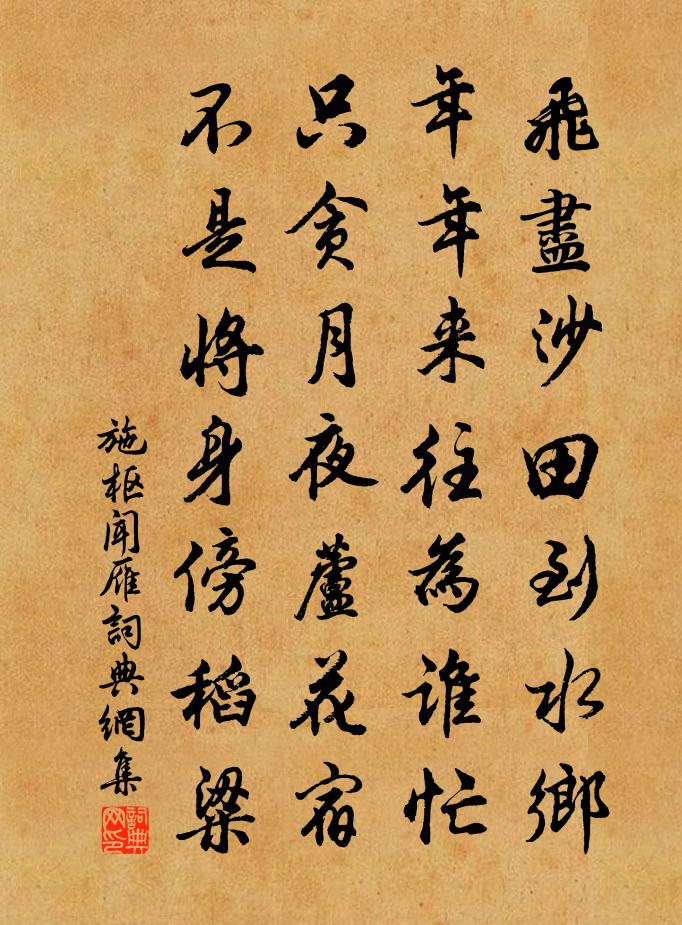 飛盡沙田到水鄉
年年来往為誰忙
只貪月夜蘆花宿
不是將身傍稻粱
施枢闻雁詞典網集
詞典网印